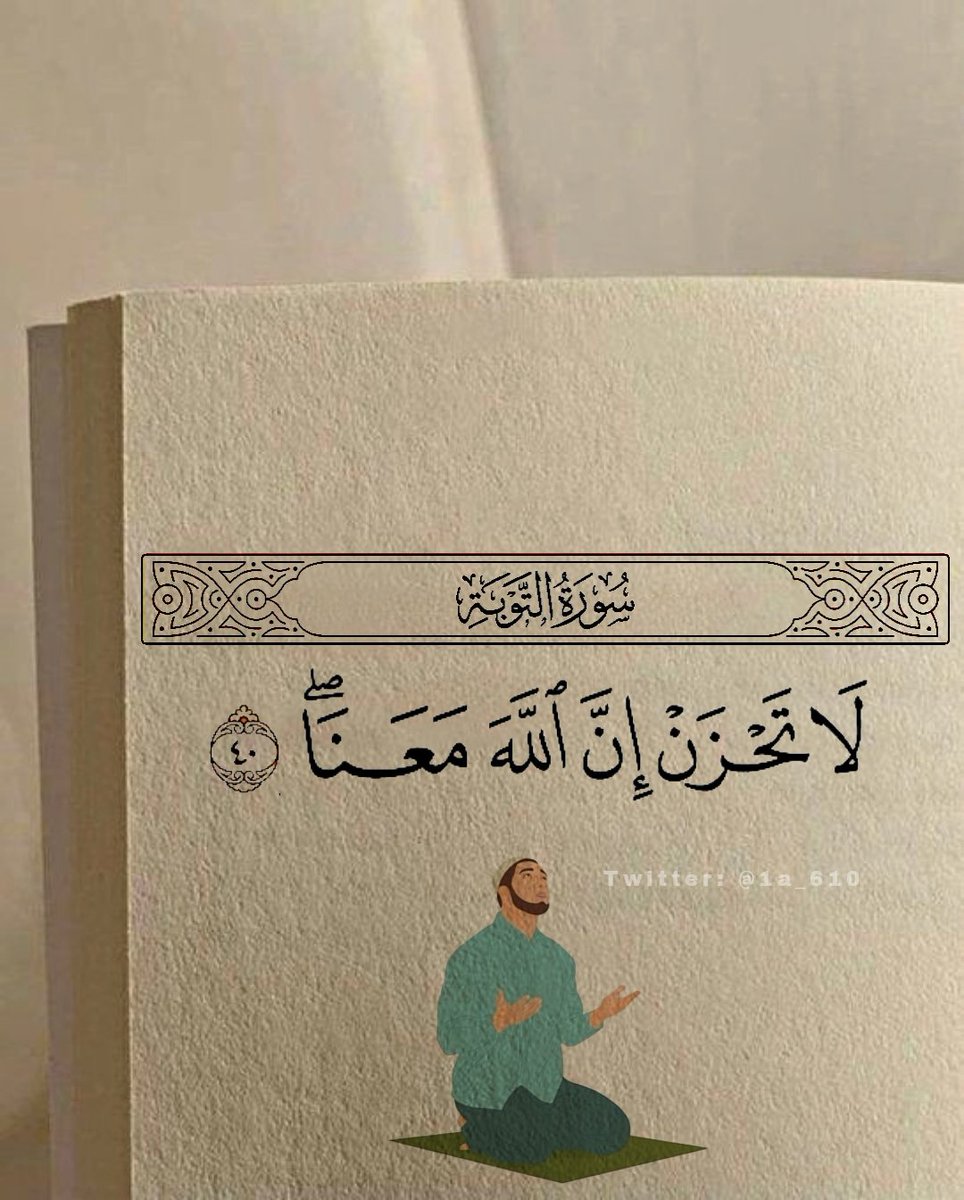 سُورَةُ التَّوْبَةِ
لَا تَحْزَنْ إِنَّ ٱللَّهَ مَعَنَاۖ ٤٠
Twitter: @1a_610